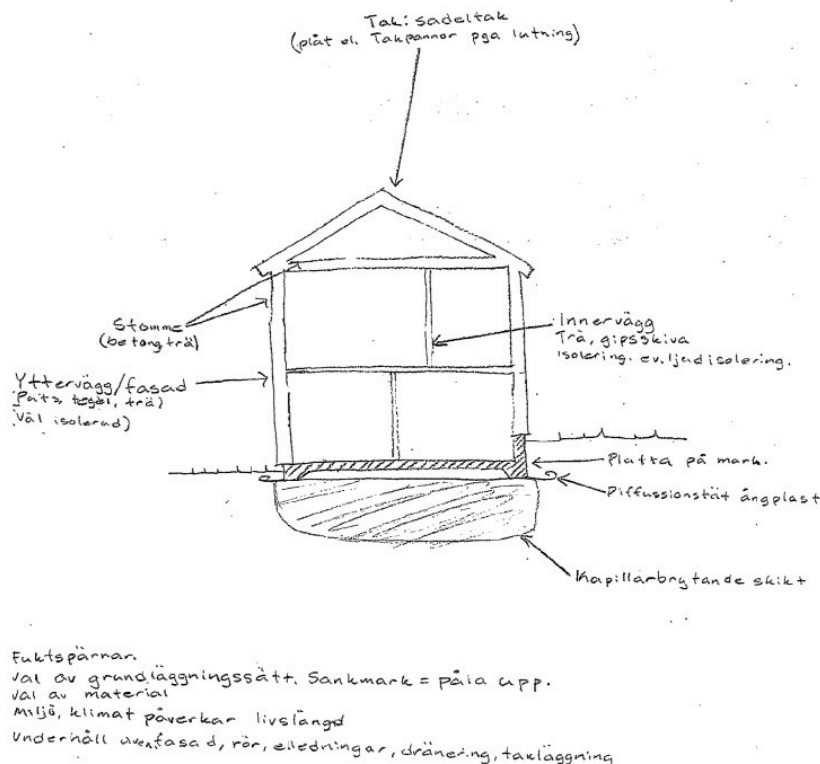 Tak: sadeltak
(plåt el. Takpannor pga lutning)
Stomme
(betong trä)
Innervägg
Trä, gipsskiva
isolering. ev. ljudisolering.
Yttervägg/fasad
(Puts, tegel, trä)
Väl isolerad)
Platta på mark.
Diffussionstät ångplast
Kapillärbrytande skikt
Fuktspärrar.
val av grundläggningssätt. Sankmark = påla upp.
val av material
Miljö, klimat påverkar livslängd
Underhåll även fasad, rör, elledningar, dränering, takläggning